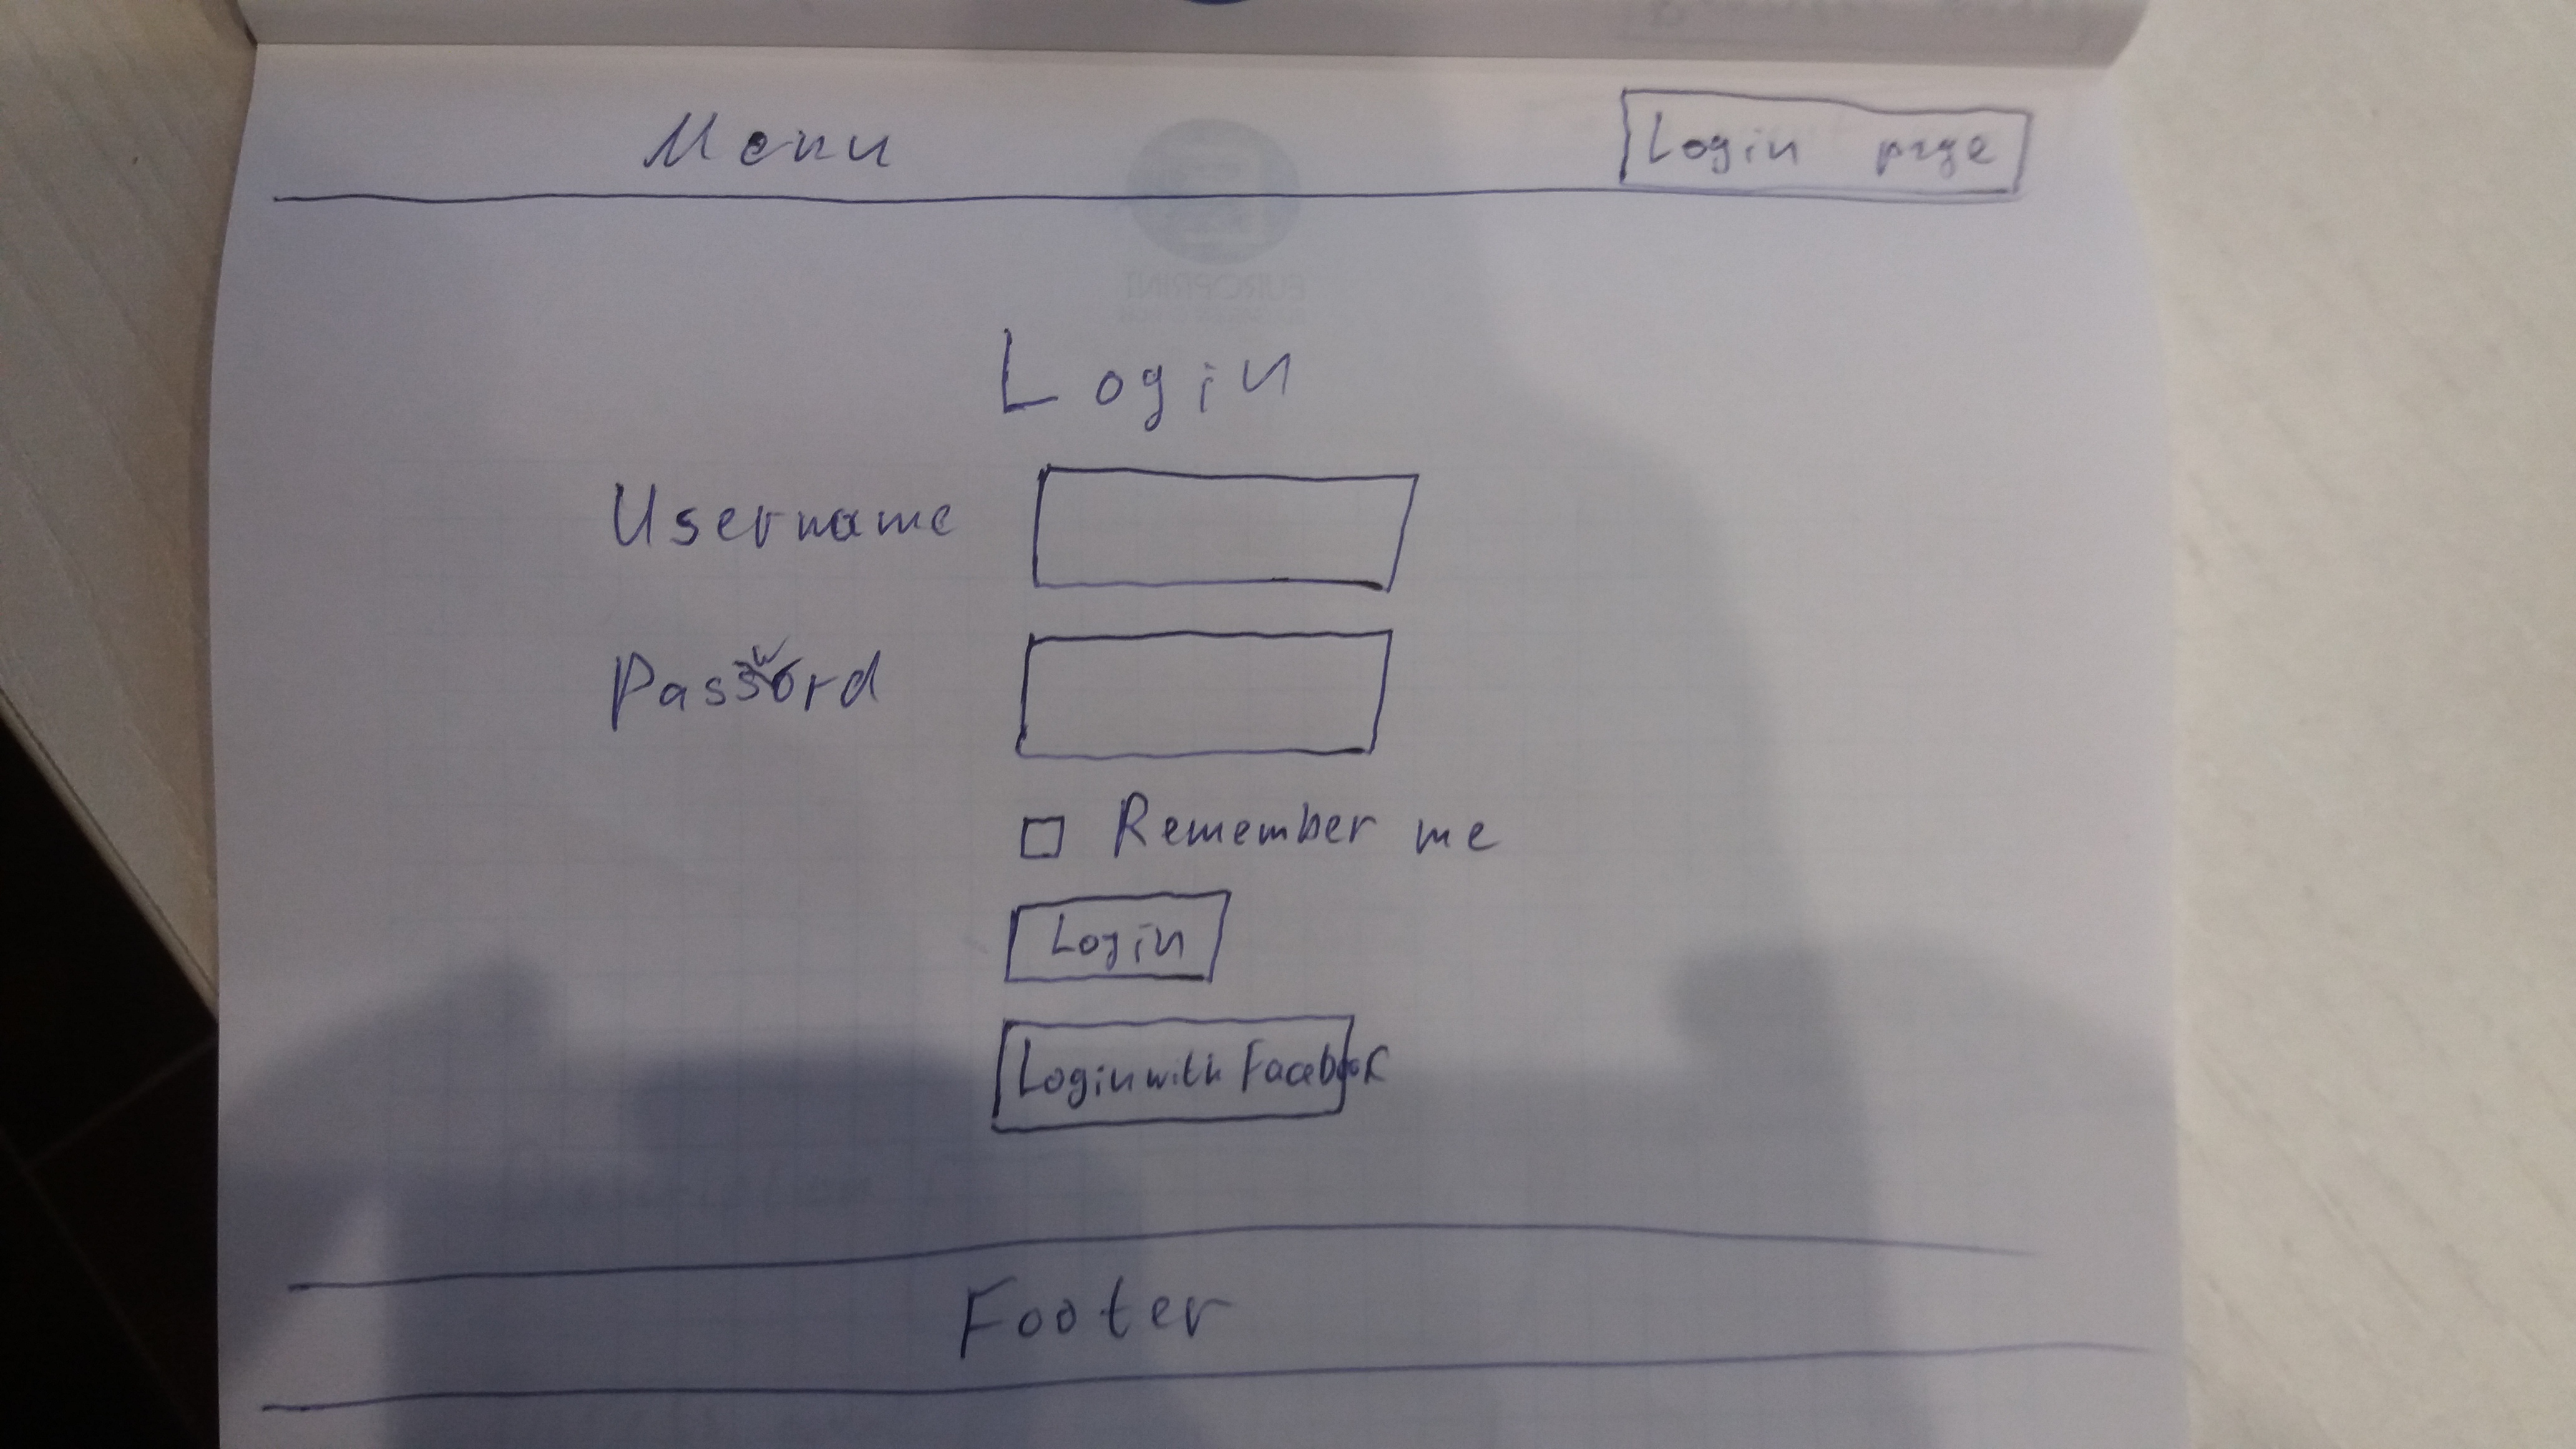 Menu
Login page
Login
Username
Password
Remember me
Login
Login with Facebook
Footer